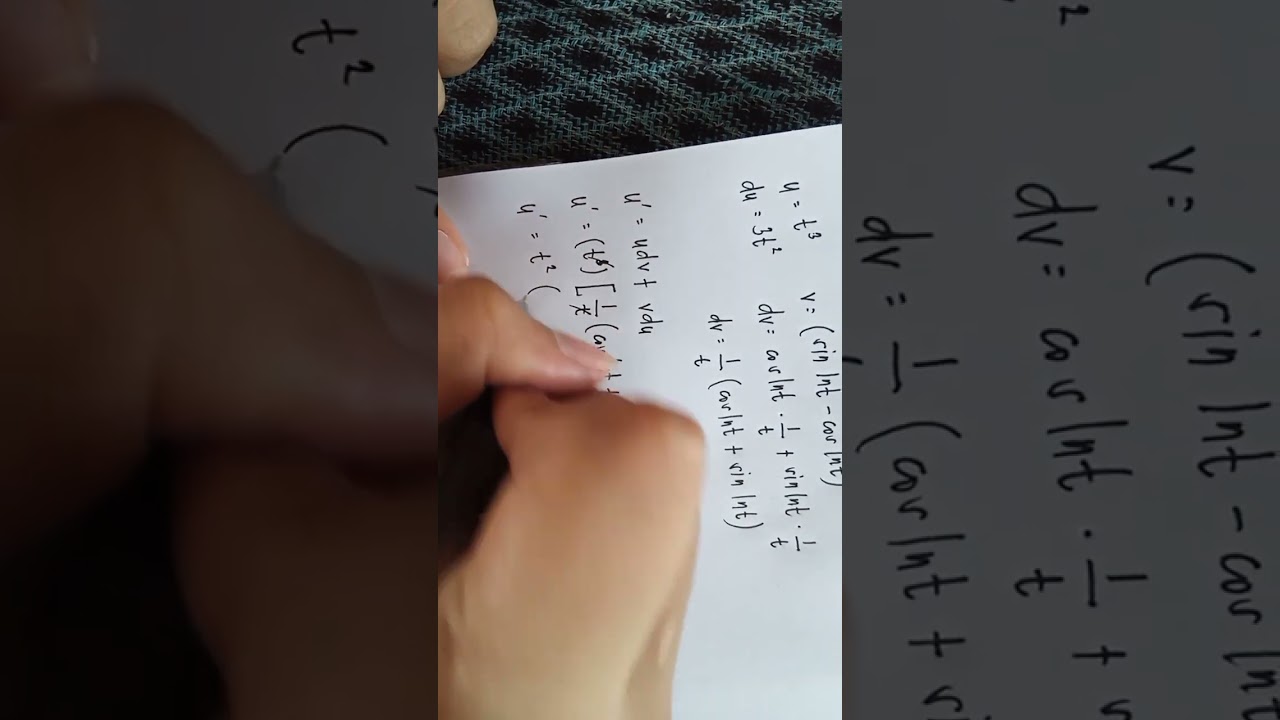 u = t³ v = (sin lnt - cos lnt)
du = 3t² dv = cos lnt · 1/t + sin lnt · 1/t
dv = 1/t (cos lnt + sin lnt)
u' = udv + vdu
u' = (t³) [ 1/t (cos
u' = t² (